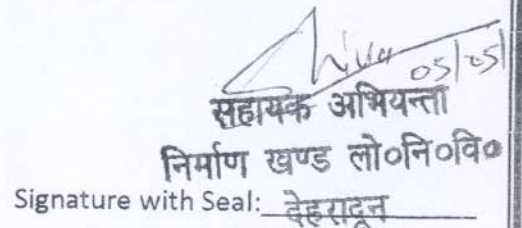 05/05/
सहायक अभियन्ता
निर्माण खण्ड लो०नि०वि०
Signature with Seal: देहरादून